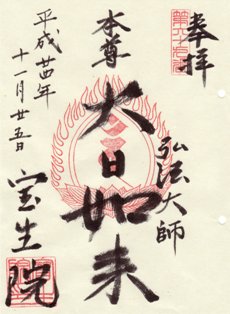 奉拝
弘法大師
本尊
大日如来
宝生院
平成廿四年
十一月廿五日